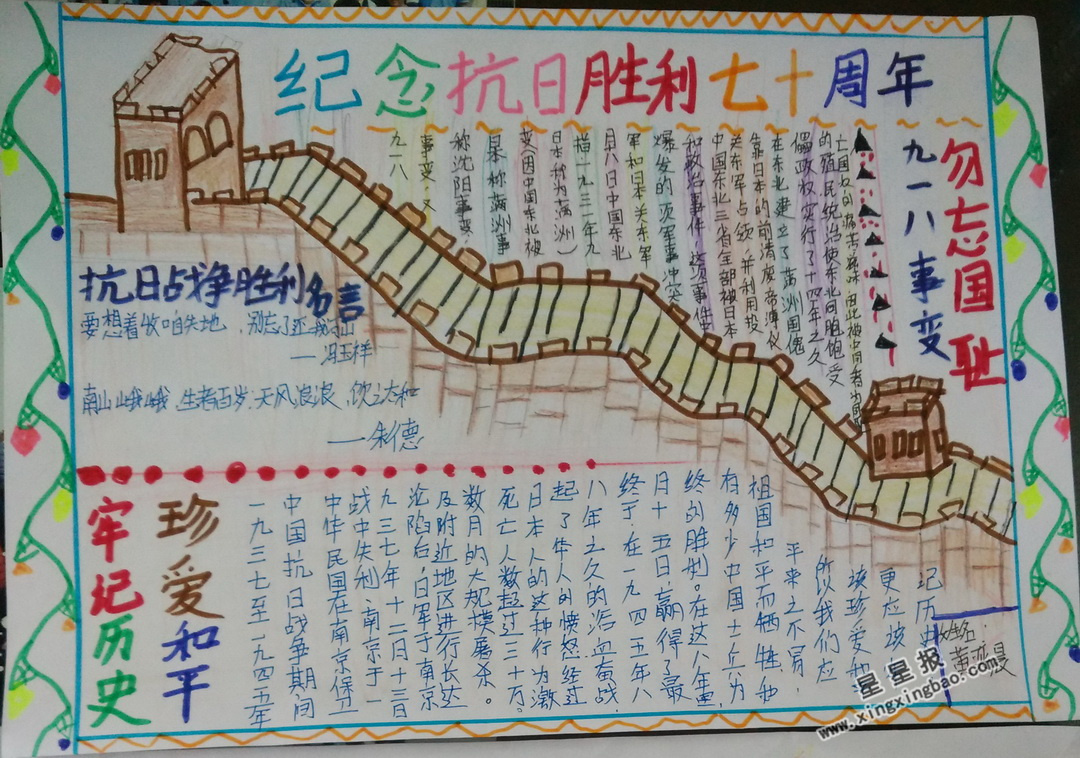 纪念抗日胜利七十周年
勿忘国耻
九一八事变
九一八
事变，又
称沈阳事变，
日本称满洲事
变(因中国东北被
日本称为满洲)
指一九三一年九
月八日中国东北
军和日本关东军
爆发的一次军事冲突
和政治事件，这次事件
中国东北三省全部被日本
关东军占领，并利用投
靠日本的前清废帝溥仪
在东北建立了满洲国傀
儡政权，实行了十四年之久
的殖民统治使东北同胞饱受
亡国奴的痛苦滋味因此被中国
抗日战争胜利名言
要想着收咱失地 别忘了还我河山
——冯玉祥
南山峨峨，生者百岁，天风浪浪，饮之太和
——朱德
牢纪历史
珍爱和平
一九三七至一九四五年
中国抗日战争期间
中华民国在南京保卫
战中失利，南京于一
九三七年十二月十三日
沦陷后，日军于南京
及附近地区进行长达
数月的大规模屠杀。
死亡人数超过三十万。
日本人的这种行为激
起了华人的愤怒经过
八年之久的浴血奋战，
终于，在一九四五年八
月十五日，赢得了最
终的胜利。在这八年里
有多少中国士兵为
祖国和平而牺牲，和
平来之不易，
所以我们应
该珍爱和
更应该
记历史
姓名：
星星报
www.xingxingbao.com